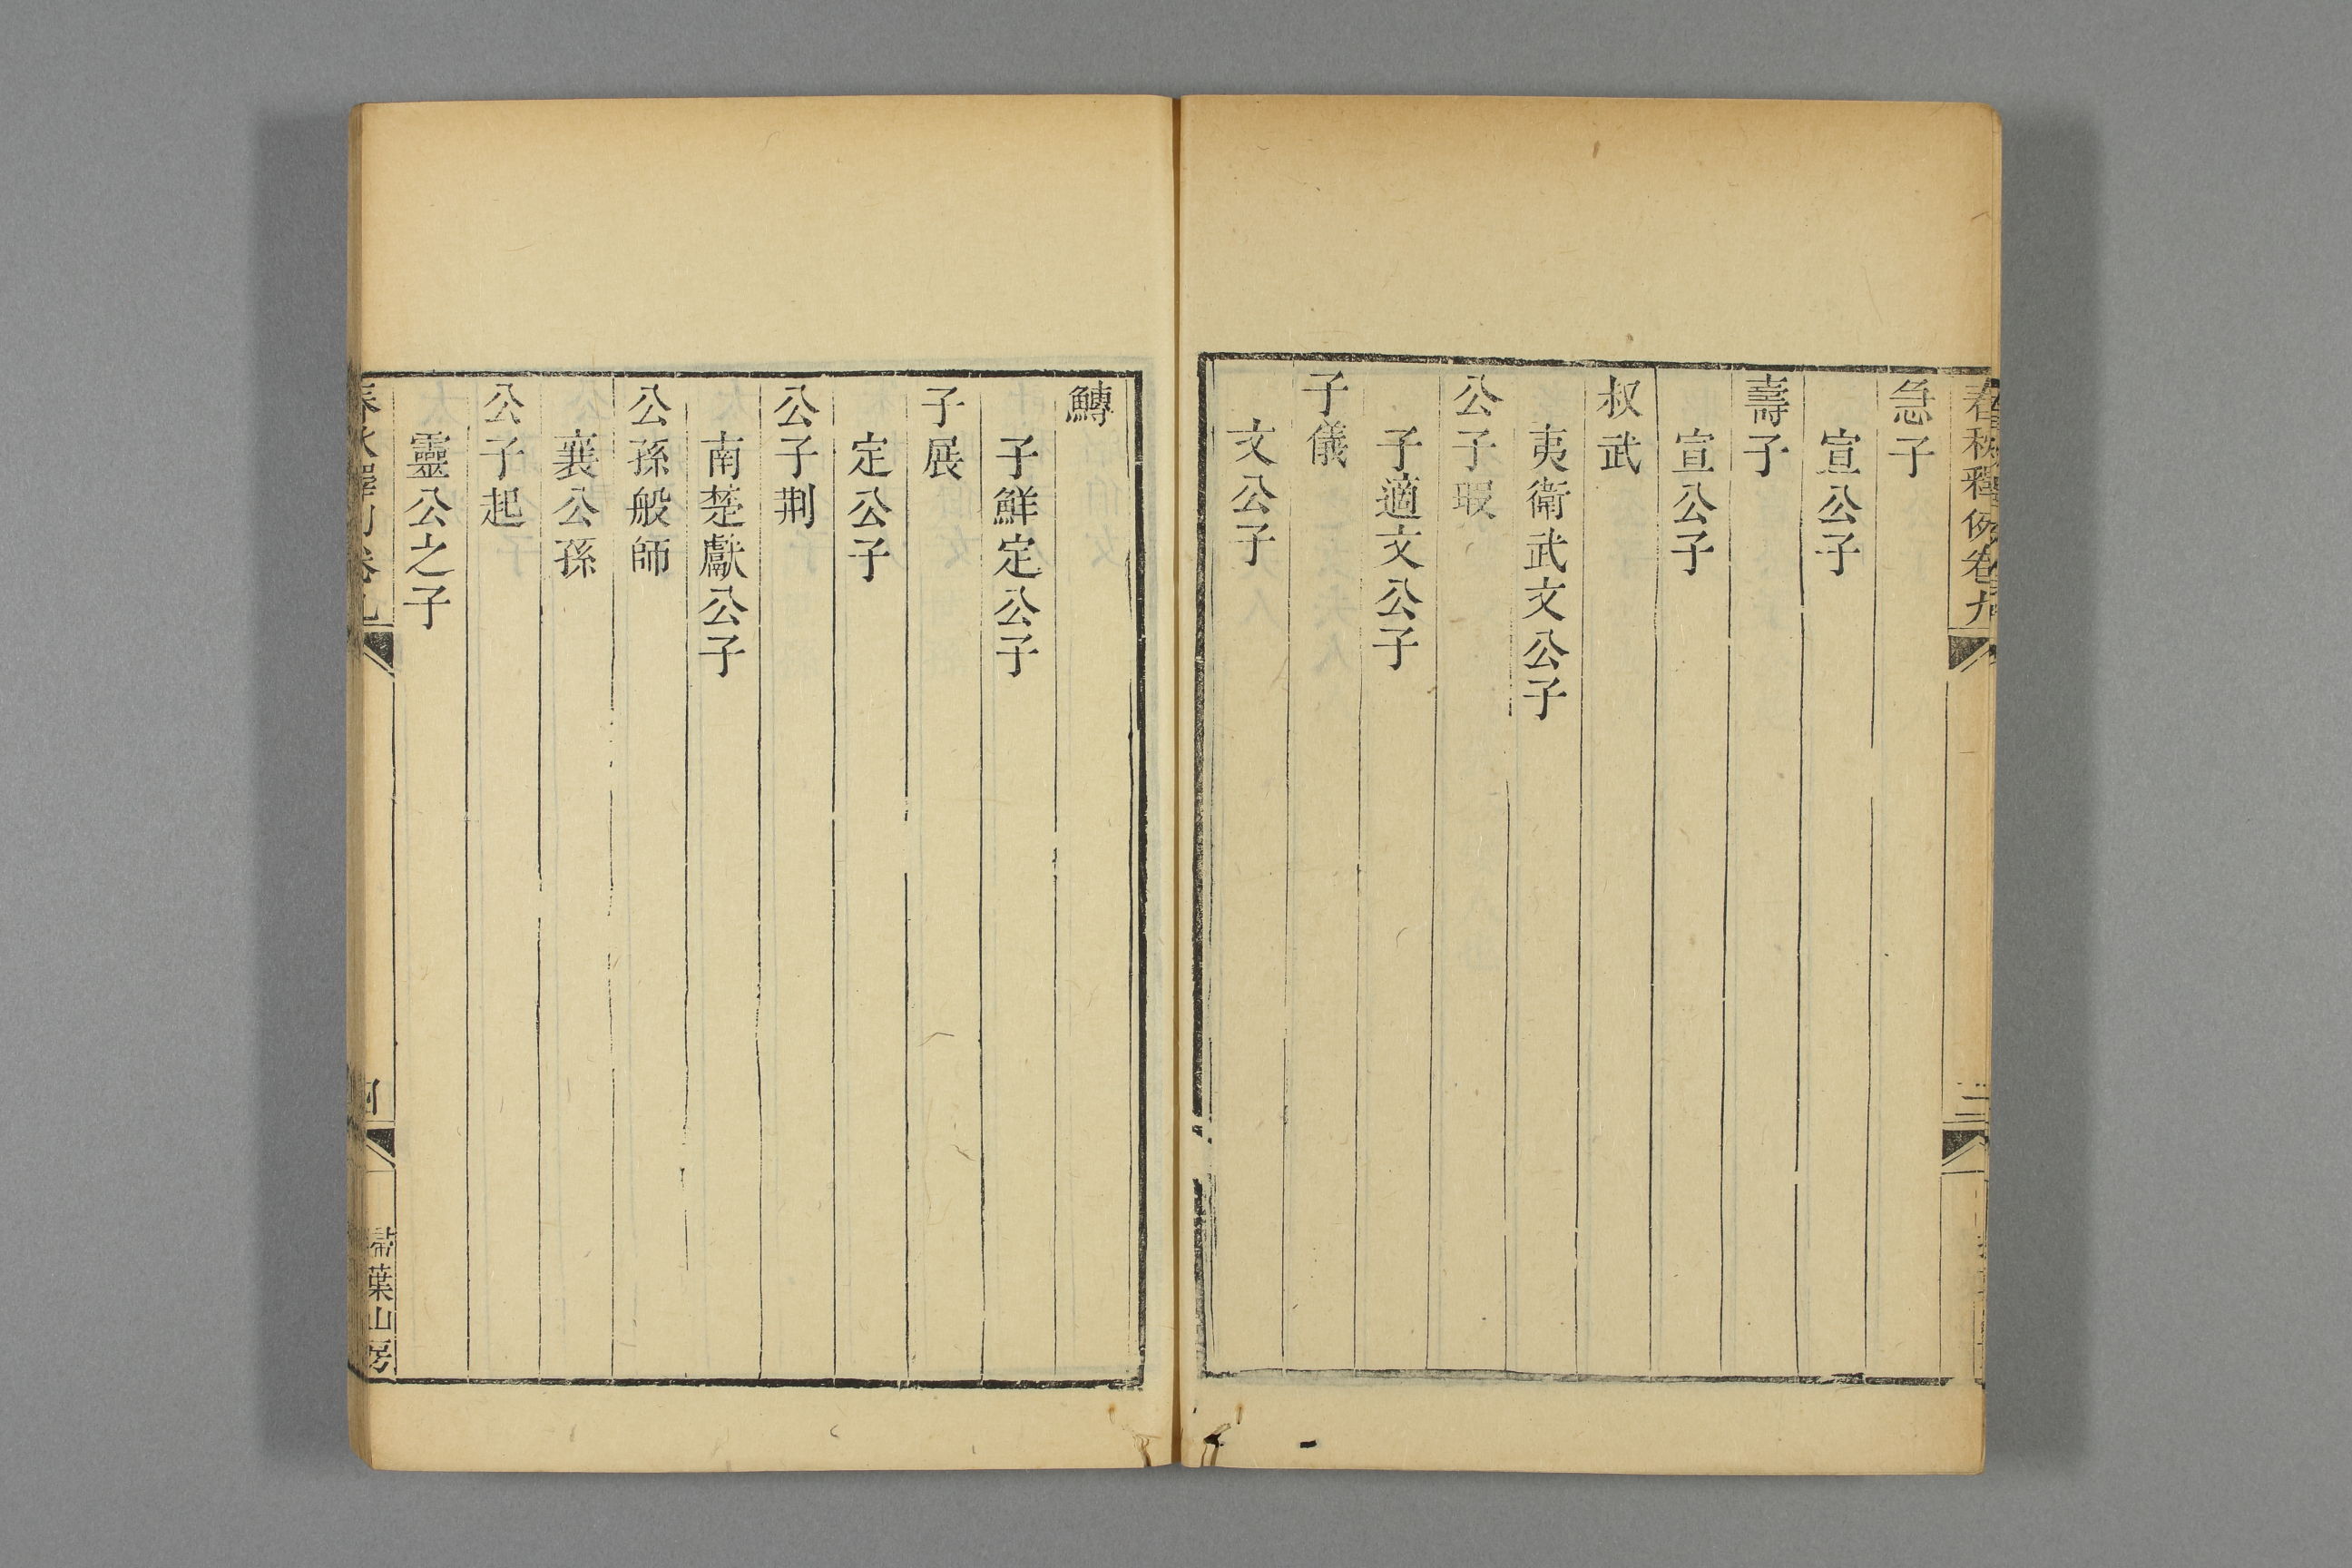 春秋釋例卷九
三
急子
宣公子
壽子
宣公子
叔武
夷衛武文公子
公子瑕
子適文公子
子儀
文公子
鱄
子鮮定公子
子展
定公子
公子荆
南楚獻公子
公孫般師
襄公孫
公子起
靈公之子
春秋釋例卷九
四
掃葉山房